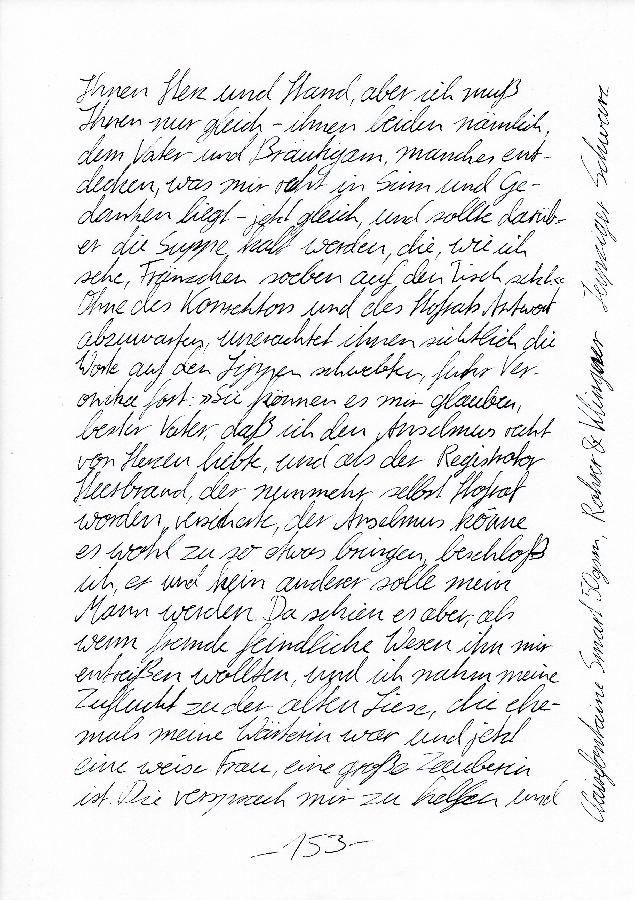 Ihnen Herz und Hand, aber ich muß
Ihnen nur gleich – ihnen beiden nämlich,
dem Vater und Bräutigam, manches ent-
decken, was mir recht in Sinn und Ge-
danken liegt – jetzt gleich, und sollte darüb-
er die Suppe kalt werden, die, wie ich
sehe, Fränzchen soeben auf den Tisch setzt.«
Ohne des Konrektors und des Hofrats Antwort
abzuwarten, unerachtet ihnen sichtlich die
Worte auf den Lippen schwebten, fuhr Ver-
onika fort: »Sie können es mir glauben,
bester Vater, daß ich den Anselmus recht
von Herzen liebte, und als der Registrator
Heerbrand, der nunmehr selbst Hofrat
worden, versicherte, der Anselmus könne
es wohl zu so etwas bringen, beschloß
ich, er und kein anderer solle mein
Mann werden. Da schien es aber, als
wenn fremde feindliche Wesen ihn mir
entreißen wollten, und ich nahm meine
Zuflucht zu der alten Liese, die ehe-
mals meine Wärterin war und jetzt
eine weise Frau, eine große Zauberin
ist. Die versprach mir zu helfen und
–153–
Clairefontaine Smart 50gsm, Rohrer & Klingner Leipziger Schwarz